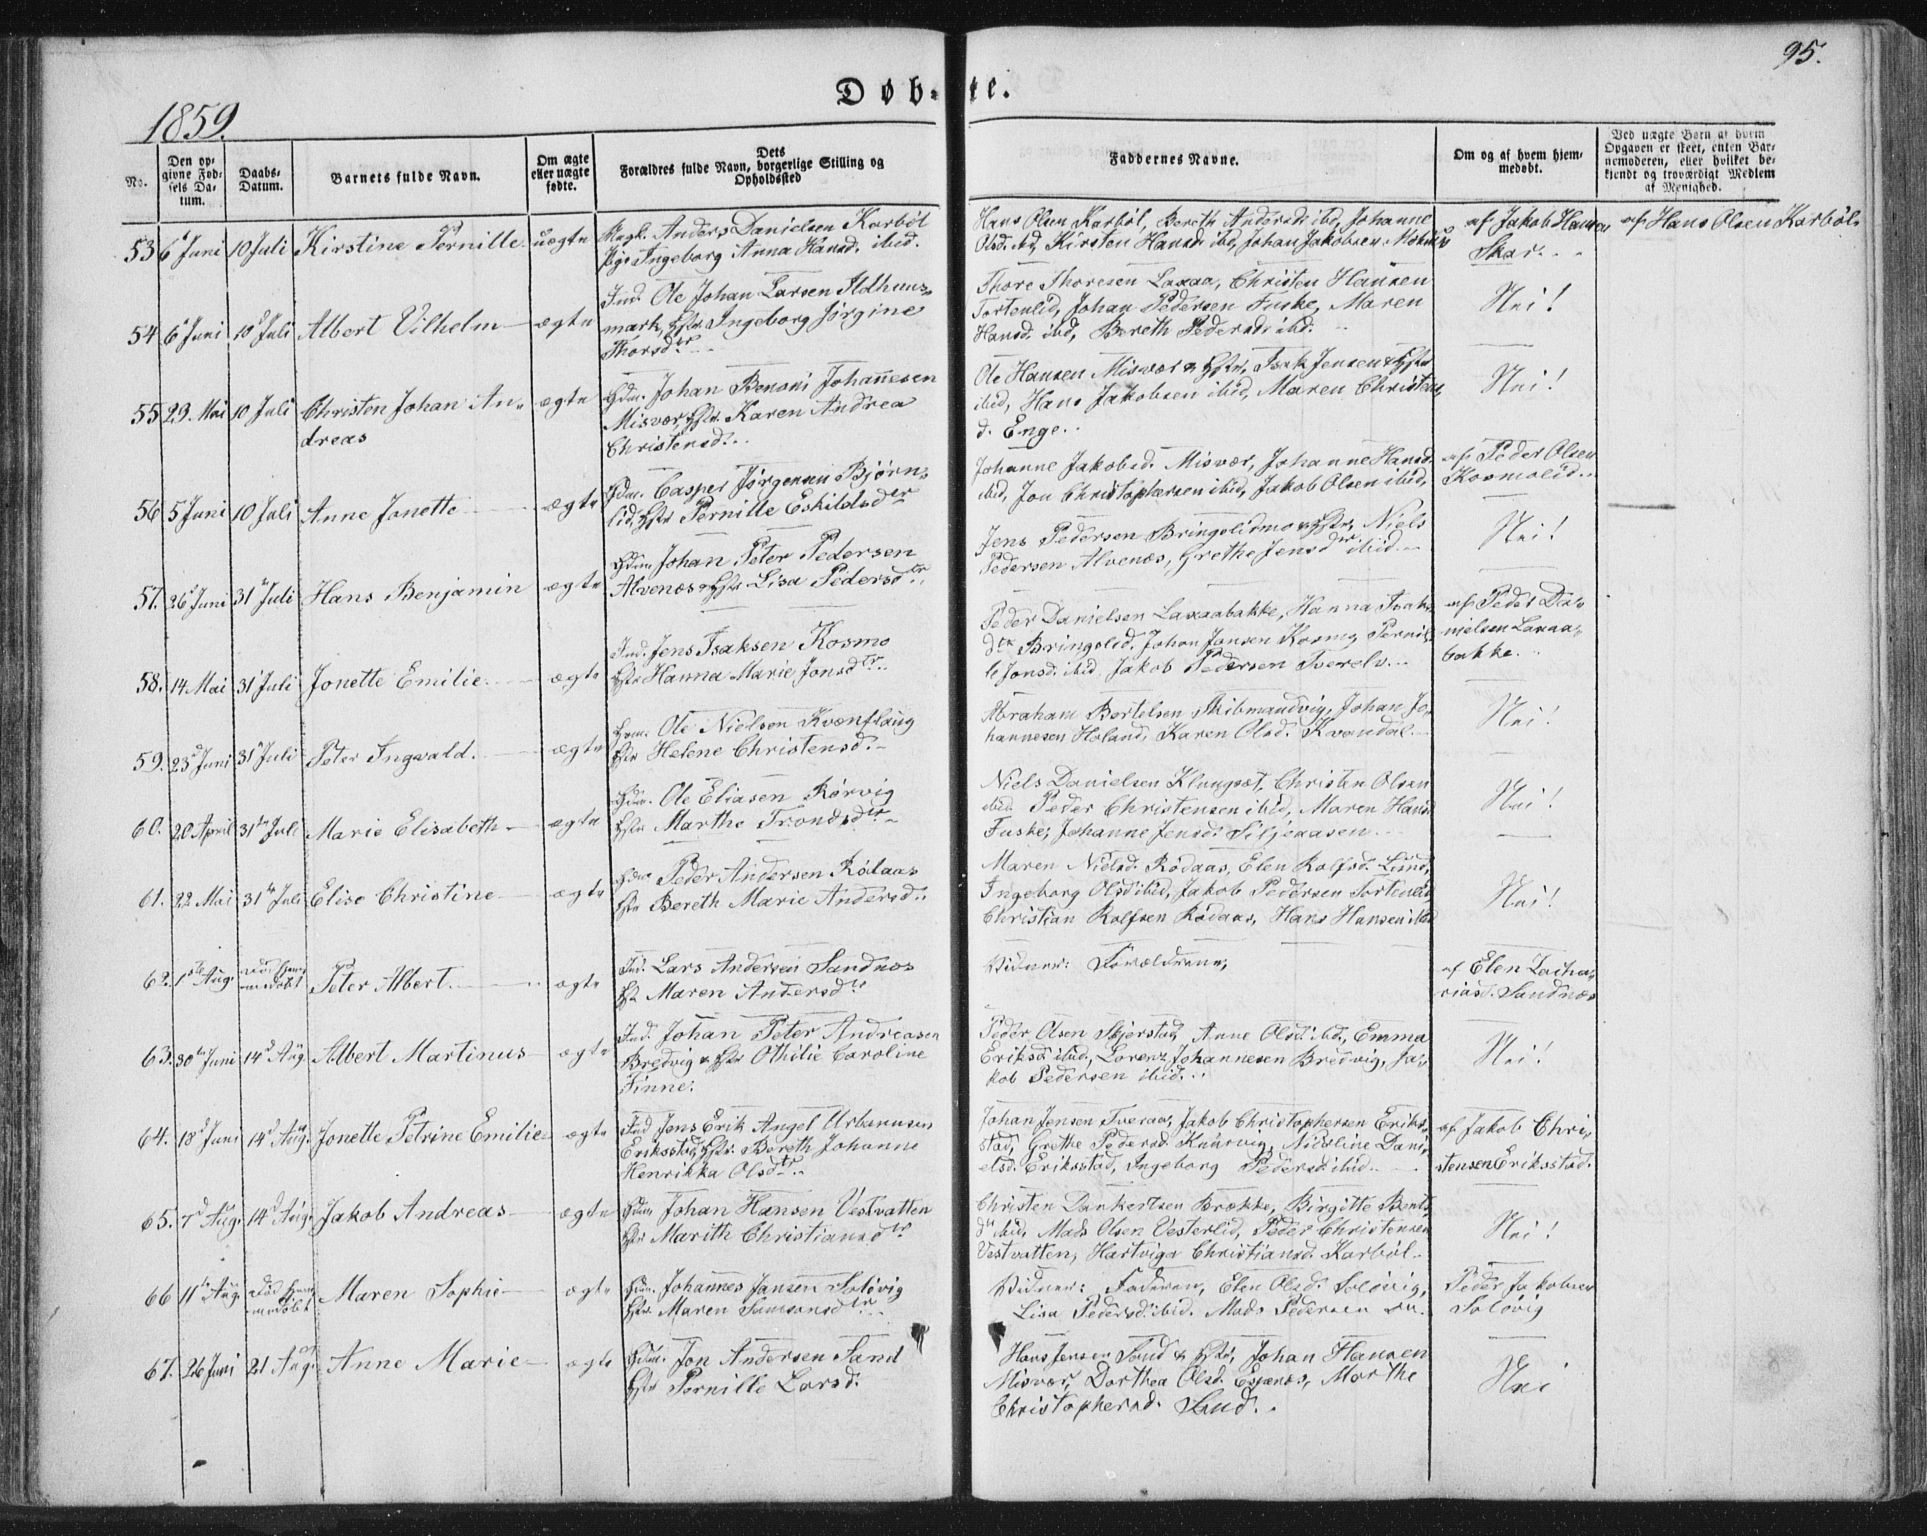 95.
Døb- te.
1859.
No.
Den op-
givne Fød-
sels Da-
tum.
Daabs-
Datum.
Barnets fulde Navn.
Om ægte
eller uægte
fødte.
Dets
Forældres fulde Navn, borgerlige Stilling og
Opholdssted
Faddernes Navne.
Om og af hvem hjem-
medøbt.
Ved uægte Børn af hvem
Opgaven er skeet, enten Bar-
nemoderen, eller hvilket be-
kjendt og troværdigt Medlem
af Menighed.
53 6 Juni 10 Juli Kirstine Pernille uægte Ungk. Anders Danielsen Karbøl
Pige Ingeborg Anna Hansd. ibid.
Hans Olsen Karbøl, Bereth Andersd. ibid, Johanne
Olsd. ibd, Kirsten Hansd. ibd, Johan Jakobsen
af Jakob Hansen
Skar.
af Hans Olsen Karbøl
54 6 Juni 10 Juli Albert Vilhelm ægte Ind. Ole Johan Larsen Ildhuus-
mark, Hstr. Ingeborg Jørgine
Thorsdtr
Thore Thoresen Laxaa, Christen Hansen
Tortenlid, Johan Pedersen Fuske, Maren
Hansd. ibd, Bereth Pedersd. ibid.
Nei!
55 29. Mai 10 Juli Christen Johan An-
dreas ægte Gdm. Johan Benoni Johannesen
Misvær, Hstr. Karen Andrea
Christensd.
Ole Hansen Misvær & Hstr, Isak Jensen & Hstr
ibid, Hans Jakobsen ibid, Maren Christens-
d. Enge.
Nei!
56 5 Juni 10 Juli Anne Jonette ægte Gdm. Casper Jørgensen Bjørn-
lid, Hstr Pernille Eskildsdtr
Johanne Jakobsd. Misvær, Johanne Hansd.
ibid, Jon Christophersen ibid, Jakob Olsen ibid,
af Peder Olsen
Kosmolid.
57. 26 Juni 31 Juli Hans Benjamin ægte Gdm. Johan Peter Pedersen
Alvenæs & Hstr. Lisa Pedersdtr
Jens Pedersen Bringslidmo & Hstr, Niels
Pedersen Alvenæs, Grethe Jensdtr ibid
Nei!
58. 14 Mai 31 Juli Jonette Emilie ægte Ind. Jens Isaksen Kosmo
Hstr Hanna Marie Jonsdtr
Peder Danielsen Laxaabakke, Hanna Isaks-
dtr Bringslid, Johan Jansen Kosmo, Pernil-
le Jonsd. ibid Jakob Pedersen Tverelv
af Peder Da-
nielsen Laxaa-
bakke.
59. 23 Juni 31 Juli Peter Ingvald. ægte Hsm. Ole Nielsen Kvænflaug
Hstr Helene Christensd.
Abraham Bertelsen Skibmandvig, Johan Jo-
hannesen Holand, Karen Olsd. Kvandal
Nei!
60. 20 April 31te Juli Marie Elisabeth ægte Gdm. Ole Eliasen Rørvig
Hstr Marthe Trondsdtr
Niels Danielsen Klungset, Christen Olsen
ibid Peder Christensen ibid, Maren Hansd
Fuske, Johanne Jensd. Siljeaasen
Nei!
61. 22 Mai 31te Juli Elise Christine ægte Gdm Peder Andersen Rødaas
Hstr Bereth Marie Andersd.
Maren Nielsd. Rødaas, Elen Rolfsd. Lund,
Ingeborg Olsd. ibid, Jakob Pedersen Tortenlid
Christian Rolfsen Rødaas, Hans Hansen ibid
Nei!
62. 1ste Aug. død, hjem-
medøbt Peter Albert. ægte Ind. Lars Andersen Sandnæs
Hstr Maren Andersdtr
Vidner: Forældrene,
af Elen Zacha-
riasd. Sandnæs
63. 30te Juni 14d Aug. Albert Martinus ægte Ind. Johan Peter Andreasen
Bredvig & Hstr Othilie Caroline
Finne.
Peder Olsen Skjerstad, Anne Olsd. ibd, Emma
Eriksd ibid, Lorenz Johannesen Bredvig, Ja-
kob Pedersen ibid.
Nei!
64. 18d Juni 14d Aug. Jonette Petrine Emilie ægte Ind Jens Erik Angel Urbanusen
Eriksstad, Hstr. Bereth Johanne
Henrikka Olsdtr
Johan Jensen Tveraa, Jakob Christophersen Eriks-
stad, Grethe Pedersd. Knarvig, Nicoline Dani-
elsd. Eriksstad, Ingeborg Pedersd. ibid
af Jakob Chri-
stensen Eriksstad.
65. 7d Aug. 14d Aug. Jakob Andreas ægte Gdm. Johan Hansen Vestvatten
Hstr Marith Christiansdtr
Christen Dankertsen Brække, Birgitte Bents-
dtr ibid, Mads Olsen Vesterlid, Peder Christensen
Vestvatten, Hartviga Christiansd. Karbøl
Nei!
66 11te Aug. død hjem-
medøbt Maren Sophie ægte Gdm. Johannes Jansen Soløvig
Hstr. Maren Samsonsdtr
Vidner: Faderen, Elen Olsd. Soløvig,
Lisa Pedersd. ibid. Mads Pedersen
Peder Jakobsen
Soløvig
67. 26 Juni 21 Aug. Anne Marie ægte Gdm. Jon Andersen Sand
Hstr Pernille Larsd.
Hans Jensen Sand & Hstr, Johan Hansen
Misvær, Dorthea Olsd. Esjenes, Marthe
Christophersd. Sand.
Nei